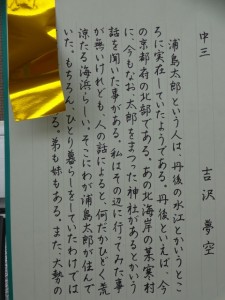 中三　吉沢　夢空
浦島太郎という人は、丹後の水江とかいうとこ
ろに実在していたようである。丹後といえば、今
の京都府の北部である。あの北海岸の某寒村
に、今もなお、太郎をまつった神社があるとかいう
話を聞いた事がある。私はその辺に行ってみた事
が無いけれども、人の話によると、何だかひどく荒
涼たる海浜らしい。そこにわが浦島太郎が住んで
いた。もちろん、ひとり暮らしをしていたわけでは
る。弟も妹もある。また、大勢の